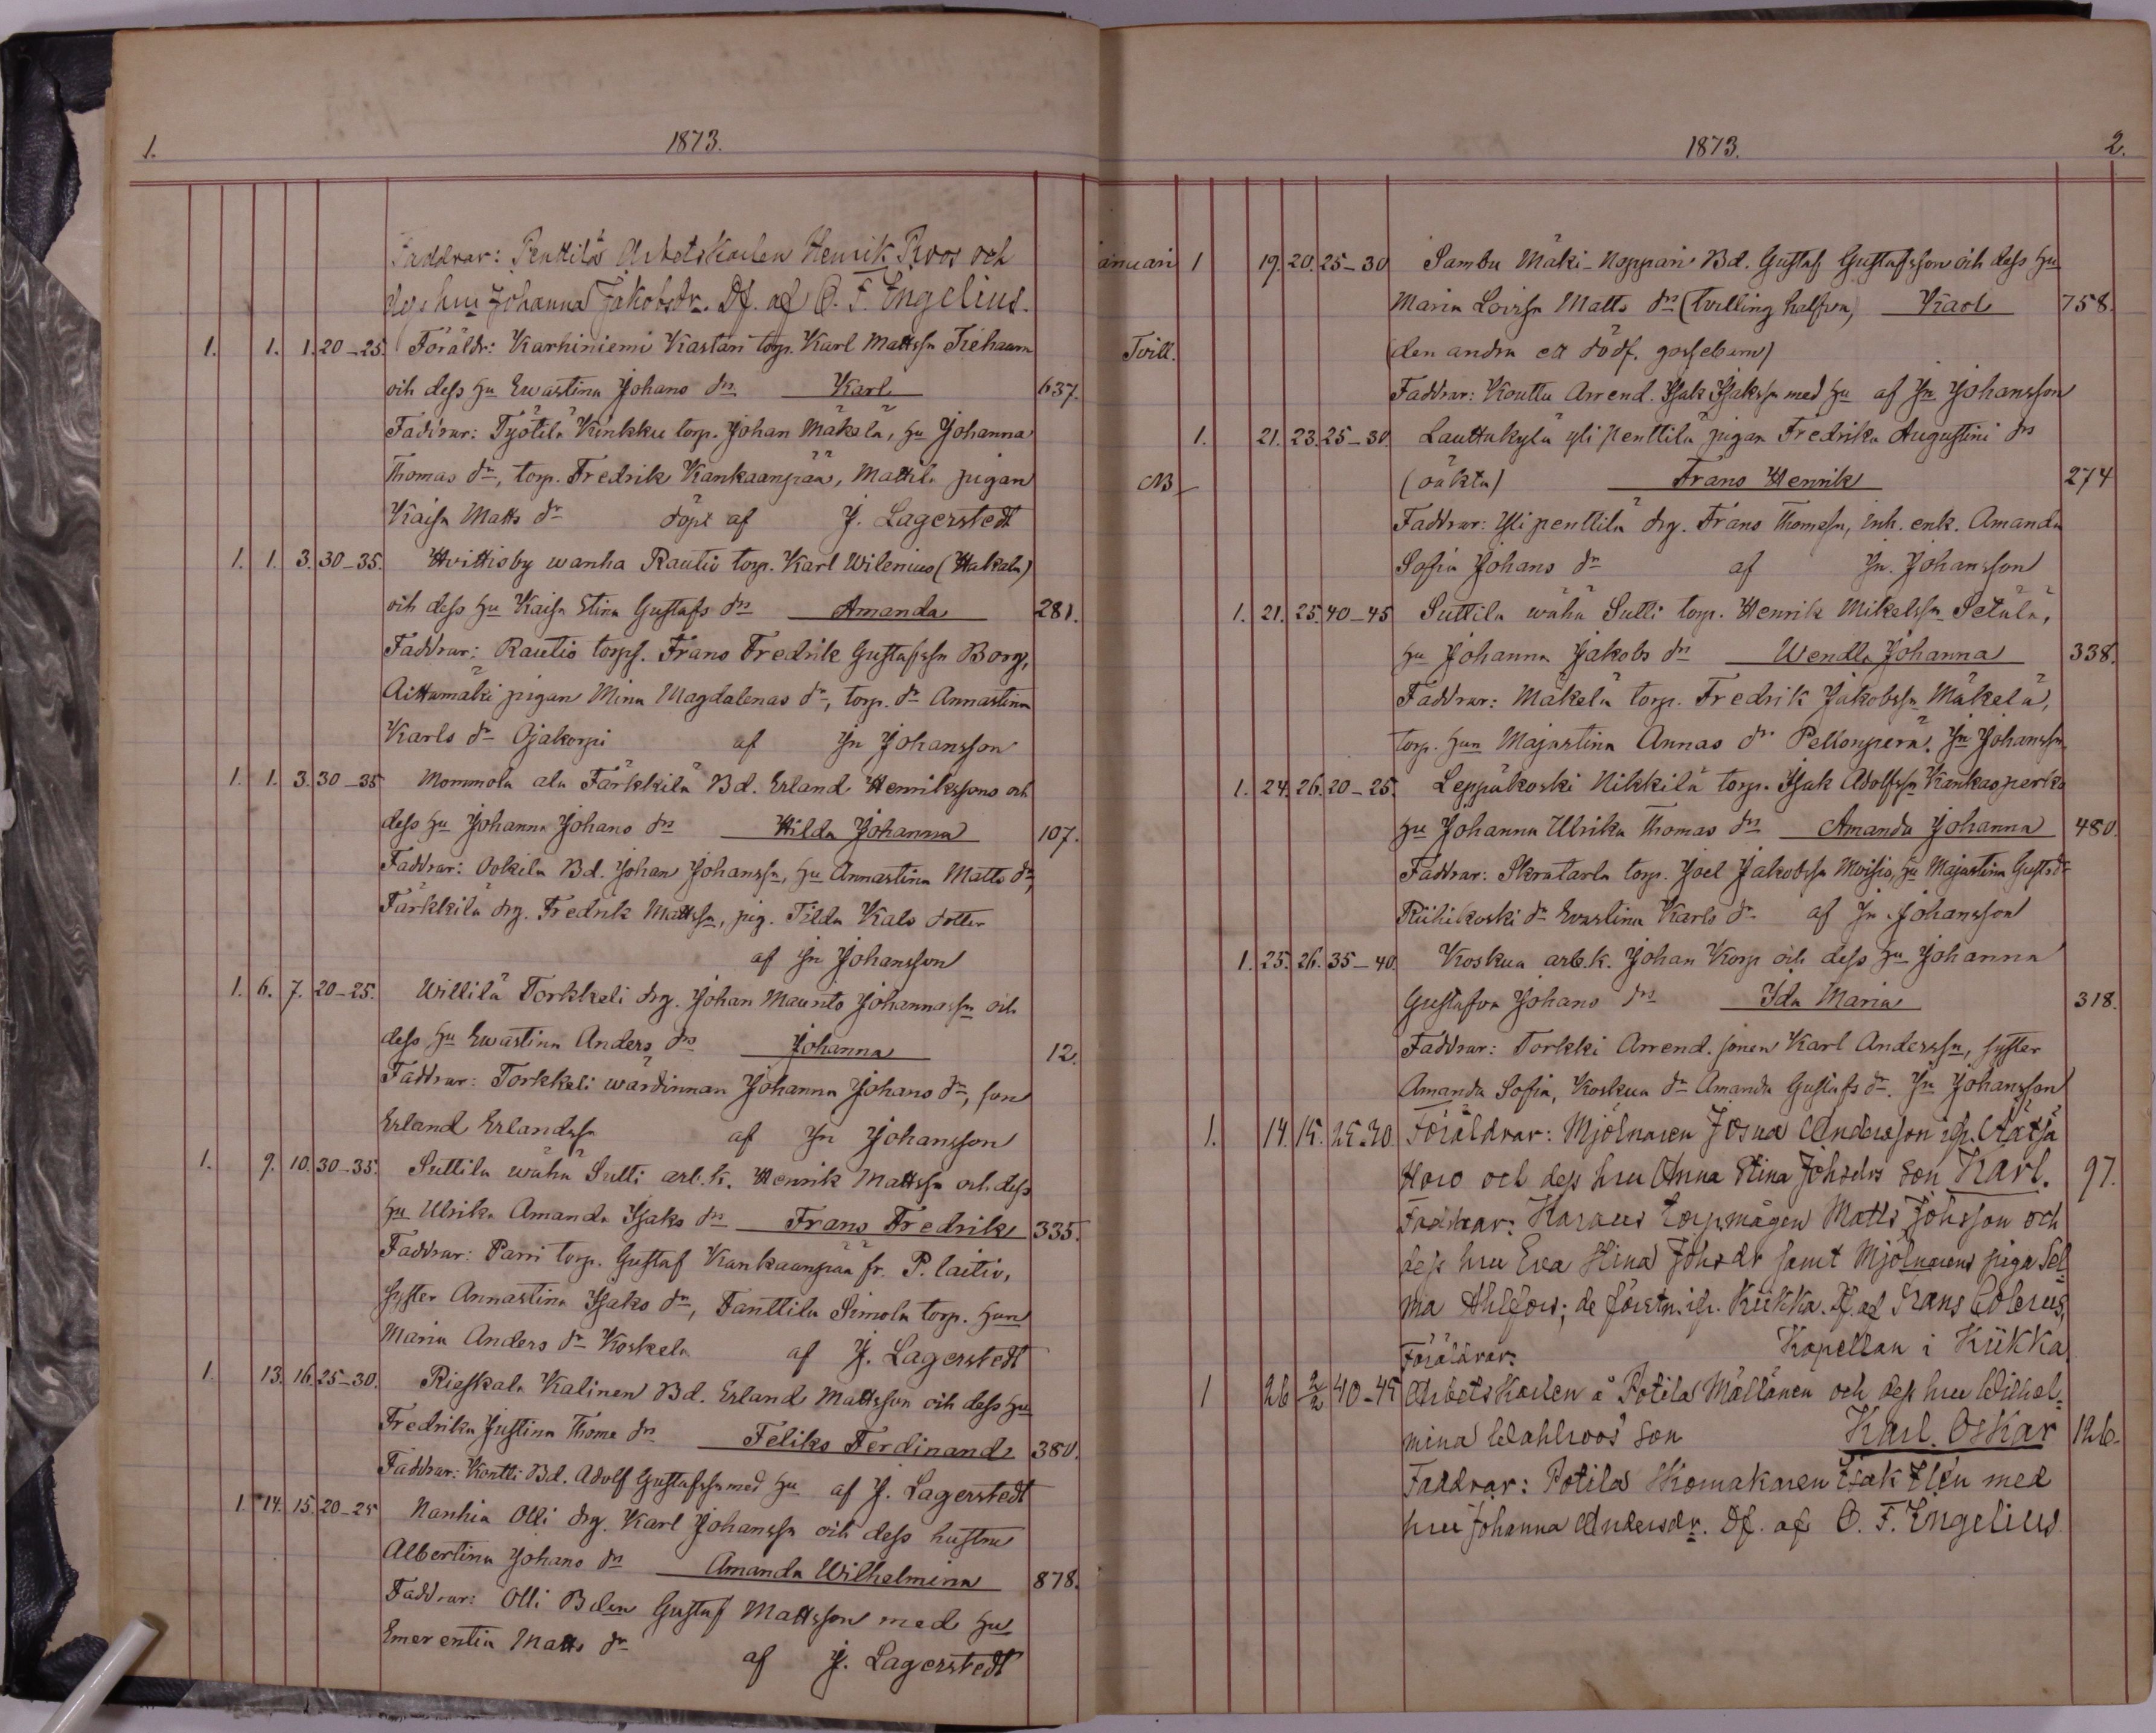 1. 1873.
Faddrar: Penttilä Arbetskarlen Henrik Roos och
dess hu Johanna Jakobsdr. Df. af O. F. Engelius.
1. 1. 1. 20-25. Föräldr: Karhiniemi Kastari torp. Karl Mattssn
och dess hu Ewastina Johans dr Karl 637.
Faddrar: Työtilä Kinkku torp. Johan Mäkelä, hu Johanna
Thomas dr, torp. Fredrik Kankaanpää, Mattila pigan
Kaisa Matts dr döpt af J. Lagerstedt
1. 1. 3. 30-35. Hvittisby wanha Rautio torp. Karl Wilenius (Hakala)
och dess hu Kaisa Stina Gustafs dr Amanda 281.
Faddrar: Rautio torps. Frans Fredrik Gustafssn Borg,
Aittamäki pigan Mina Magdalenas dr, torp. dr Annastina
Karls dr Ojakorpi af Jn Johansson
1. 1. 3. 30-35 Mommola ala Färkkilä Bd. Erland Henrikssons och
dess hu Johanna Johans dr Hilda Johanna 107.
Faddrar: Ookila Bd. Johan Johanssn, hu Annastina Matts dr,
Färkkilä drg. Fredrik Mattssn, pig. Tilda Kals dotter
af Jn Johansson
1. 6. 7. 20-25. Willilä Torkkeli drg. Johan Maunto Johannassn och
dess hu Ewastina Anders dr Johanna 12.
Faddrar: Torkkeli wärdinnan Johanna Johans dr, son
Erland Erlandssn af Jn Johansson
1. 9. 10. 30-35. Suttila wähä Sutti arb.k. Henrik Mattssn och dess
hu Ulrika Amanda Isaks dr Frans Fredrik 335.
Faddrar: Parri torp. Gustaf Kankaanpää fr. P. laitio,
syster Annastina Isaks dr, Tanttila Simola torp. hun
Maria Anders dr Koskela af J. Lagerstedt
1. 13. 16. 25-30. Rieskala Kalinen Bd. Erland Mattsson och dess hu
Fredrika Justina Thoma dr Feliks Ferdinand 380.
Faddrar: Kontti Bd. Adolf Gustafssn med hu af J. Lagerstedt
1. 14. 15. 20-25 Nanhia Olli drg. Karl Johanssn och dess hustru
Albertina Johans dr Amanda Wilhelmina 878.
Faddrar: Olli Bden Gustaf Mattsson med hu
Emerentia Matts dr af J. Lagerstedt
1873. 2.
januari 1 19. 20. 25-30 Sambu Mäki-Noppari Bd. Gustaf Gustafsson och dess hu
Maria Lovisa Matts dr (tvilling halfva) Kaol 758.
Tvill. (den andra ett dödf. gossebarn)
Faddrar: Kouttu Arrend. Isak Isakssn med hu af Jn Johansson
1. 21. 23. 25-30. Lauttakylä yli penttilä pigan Fredrika Augustini dr
NB (oäkta) Frans Henrik 274
Faddrar: Yli penttilä drg. Frans Thomassn, inh. enk. Amanda
Sofia Johans dr af Jn. Johansson
1. 21. 25. 40-45 Suttila wähä Sutti torp. Henrik Mikelssn Setälä,
hu Johanna Jakobs dr Wendla Johanna 338.
Faddrar: Mäkelä torp. Fredrik Jakobssn Mäkelä,
torp. hun Majastina Annas dr Pellonperä. Jn Johanssn
1. 24. 26. 20-25. Leppäkoski Nikkilä torp. Isak Adolfssn Kankasperko
hu Johanna Ulrika Thomas dr Amanda Johanna 480.
Faddrar: Skratarla torp. Joel Jakobssn Moisio, hu Majastina Gusts dr
Riihikoski dr Evastina Karls dr af Jn Johansson
1. 25. 26. 35-40. Koskua arb.k. Johan Korp och dess hu Johanna
Gustafva Johans dr Ida Maria 318.
Faddrar: Torkki Arrend. sonen Karl Anderssn, syster
Amanda Sofia, Koskua dr Amanda Gustafs dr. Jn Johansson
1. 14. 15. 25-30 Föräldrar: Mjölnaren Josua Andersson ifr.
och dess hru Anna Stina Johsdrs son Karl. 97.
Faddrar: Karaus torpmågen Matts Johsson och
dess hru Eva Stina Johsdr samt Mjölnarens piga Sel-
ma Ahlfors; de förstn. ifr. Kiikka. Df. af Frans
Kapellan i Kiikka
Föräldrar:
1 26 2/2 40-45 Arbetskarlen å Potila Mällänen och dess hru Wilhel-
mina Wahlroos' son Karl. Oskar 126.
Faddrar: Potila Skomakaren Isak Flén med
hru Johanna Andersdr. Df. af O. F. Engelius.